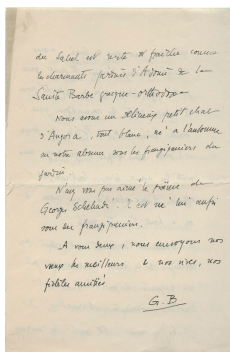 du Salut est resté si fraîche comme
les charmants jardins d'Adonis de la
Sainte Barbe grecque-orthodoxe
Nous avons un délicieux petit chat
d'Angora, tout blanc, né à l'automne
en notre absence sous les frangipaniers du
jardin
N'avez vous pas aimé le poème de
Georges Schehadé ... est né lui aussi
sous un frangipanier.
A vous deux, nous envoyons nos
vœux les meilleurs & nos rires, nos
fidèles amitiés
G.B